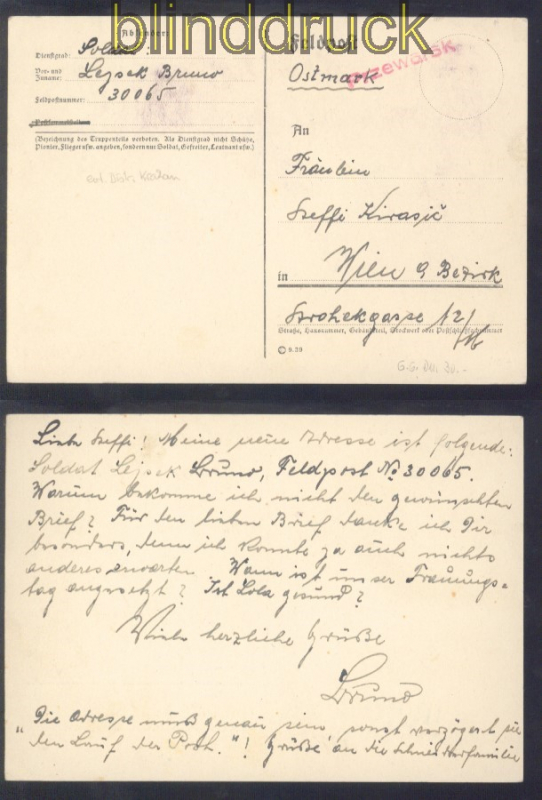 blinddruck
Absender:
Dienstgrad: Soldat
Vor- und
Zuname: Lejsek Bruno
Feldpostnummer: 30065
(Bezeichnung des Truppenteils verboten. Als Dienstgrad nicht Schütze,
Pionier, Flieger usw. angeben, sondern nur Soldat, Gefreiter, Leutnant usw.)
Feldpost
Ostmark
An
Fräulein
Steffi Kirasič
in Wien 9 Bezirk
Strohekgasse 12/
Straße, Hausnummer, Gebäudeteil, Stockwerk oder Postschließfachnummer
9.39
Liebe Steffi! Meine neue Adresse ist folgende:
Soldat Lejsek Bruno, Feldpost No 30065.
Warum bekomme ich nicht den gewünschten
Brief? Für den lieben Brief danke ich Dir
besonders, denn ich konnte ja auch nichts
anderes erwarten. Wann ist unser Trauungs-
tag angesetzt? Ist Lola gesund?
Viele herzliche Grüße
Bruno
"Die Adresse muß genau sein, sonst verzögert sie
den Lauf der Post."! Grüße an die